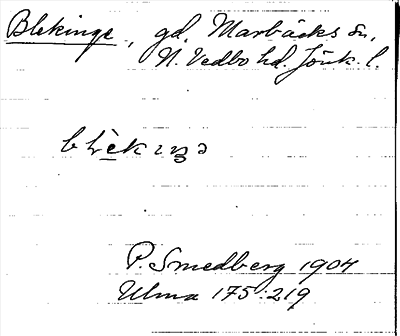 Blekinge, gd. Marbäcks sn,
N. Vedbo hd. Jönk. l.
P. Smedberg 1904
Ulma 175:219